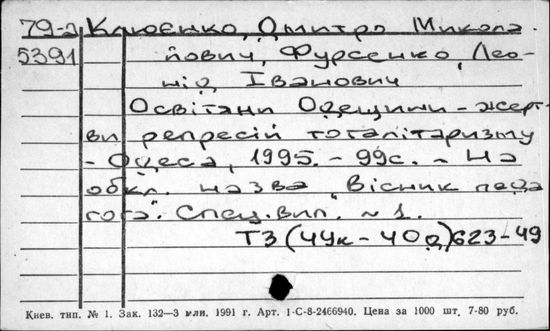 79-а Клюєнко, Дмитро Микола-
5391 йович, Фурсенко, Лео-
нід Іванович
Освітяни Одещини - жерт-
ви репресій тоталітаризму
- Одеса, 1995. - 99с. - На
обкл. назва "Вісник педа
гога". Спец.вип. №1.
ТЗ(4Ук-4Од)623-49
Киев. тип. № 1. Зак. 132—3 млн. 1991 г. Арт. 1-С-8-2466940. Цена за 1000 шт. 7-80 руб.